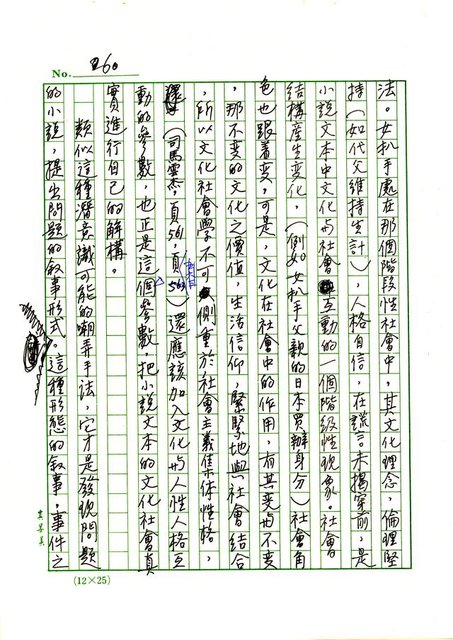 No. 260
法。女扒手處在那個階段性社會中，其文化理念，倫理堅
持（如代父維持生計），人格自信，在謊言未揭穿前，是
小說文本中文化與社會互動的一個階級性現象。社會
結構產生變化，（例如女扒手父親的日本買辦身分）社會角
色也跟着變，可是，文化在社會中的作用，有其變與不變
，那不變的文化之價值，生活信仰，緊緊地與社會結合
，所以文化社會學不可側重於社會主義集体性格，
（司馬雲杰，頁561，頁563）還應該加入文化與人性人格互
動的參數，也正是這個參數，把小說文本的文化社會真
實進行自己的解構。
類似這種潛意識可能的嘲弄手法，它才是發現問題
的小說，提出問題的敘事形式。這種形態的敘事，事件之
(12×25)